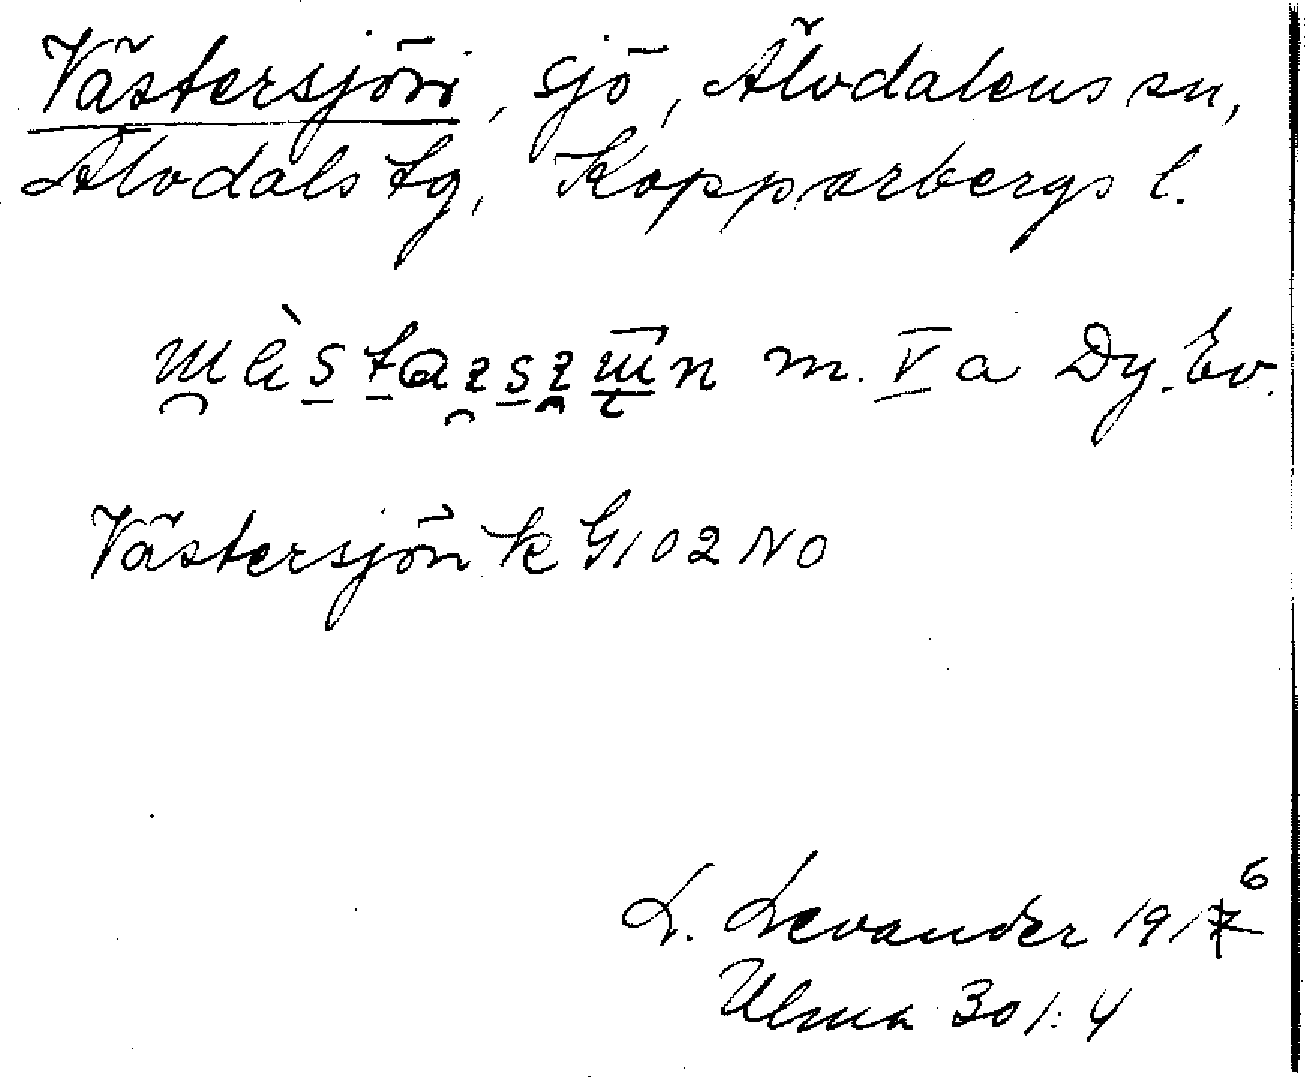 Västersjön, sjö, Älvdalens sn,
Älvdals tg, Kopparbergs l.
m. V a Dy. Ev.
Västersjön k G102 NO
L. Levander 1916
Ulma 301:4